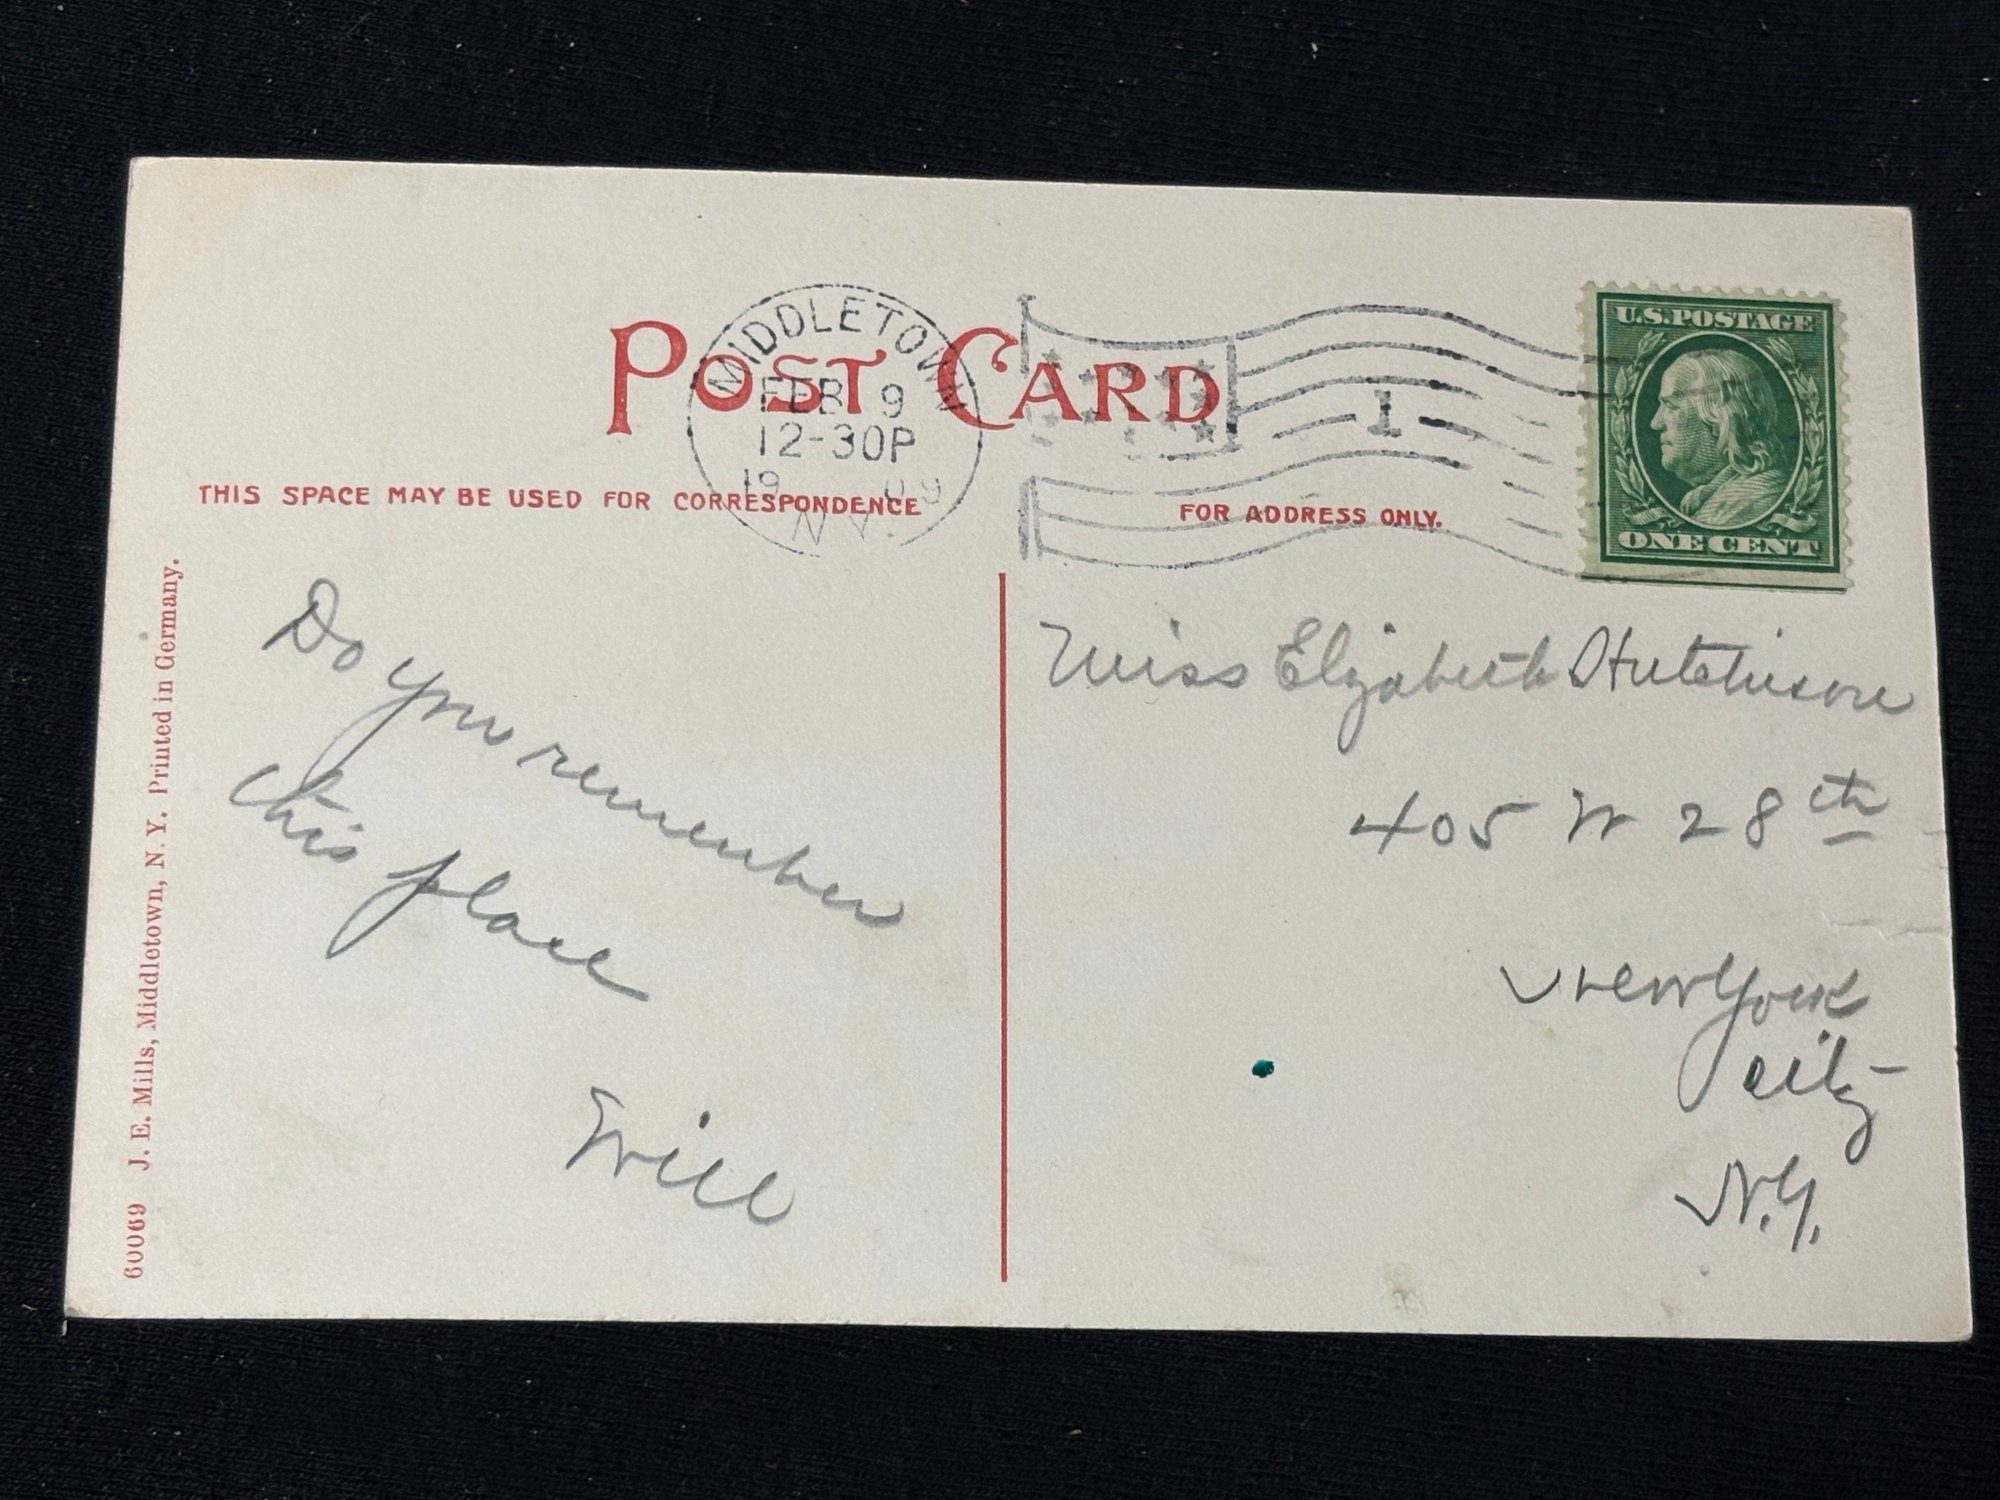 POST CARD
MIDDLETOWN
FEB 9
12-30P
19 09
N.Y.
1
U.S.POSTAGE
ONE CENT
THIS SPACE MAY BE USED FOR CORRESPONDENCE
FOR ADDRESS ONLY.
Do you remember
this place
Will
Miss Elizabeth Hutchinson
405 W 28th
New York
City
N.Y.
60069 J. E. Mills, Middletown, N. Y. Printed in Germany.